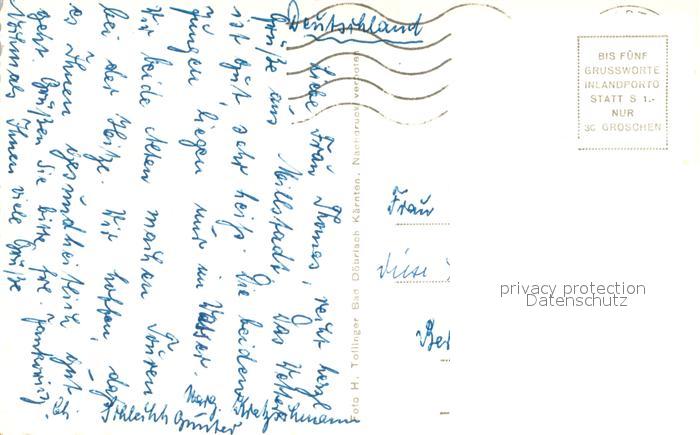 Deutschland
Liebe Frau Thomas, recht herzl.
Grüße aus Millstadt. Das Wetter
ist gut, sehr heiß. Die beiden
Jungen liegen nur im Wasser.
Wir beide Alten machen Touren
bei der Hitze. Wir hoffen, daß
es Ihnen gesundheitlich gut
geht. Grüßen Sie bitte Fre.
Nochmals Ihnen viele Grüße
Günter
Marg. Kretzschmann
Foto H. Tollinger Bad Döbriach Kärnten, Nachdruck verboten
BIS FÜNF
GRUSSWORTE
INLANDPORTO
STATT S 1.-
NUR
30 GROSCHEN
Frau
Ber
privacy protection
Datenschutz